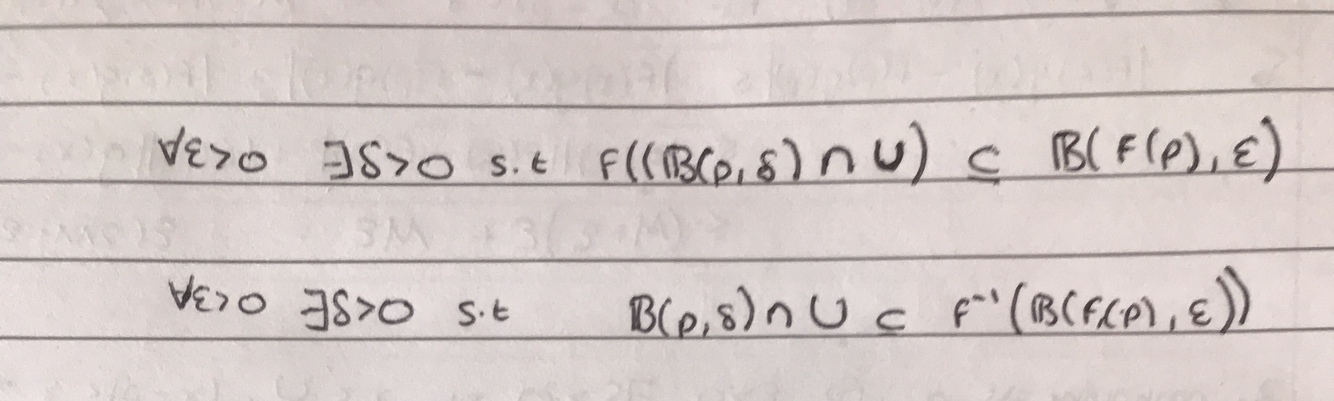 ∀ε>0 ∃δ>0 s.t F((𝔹(p,δ)∩U) ⊆ 𝔹(F(p),ε)
∀ε>0 ∃δ>0 s.t 𝔹(p,δ)∩U ⊂ F⁻¹(𝔹(F(p),ε))